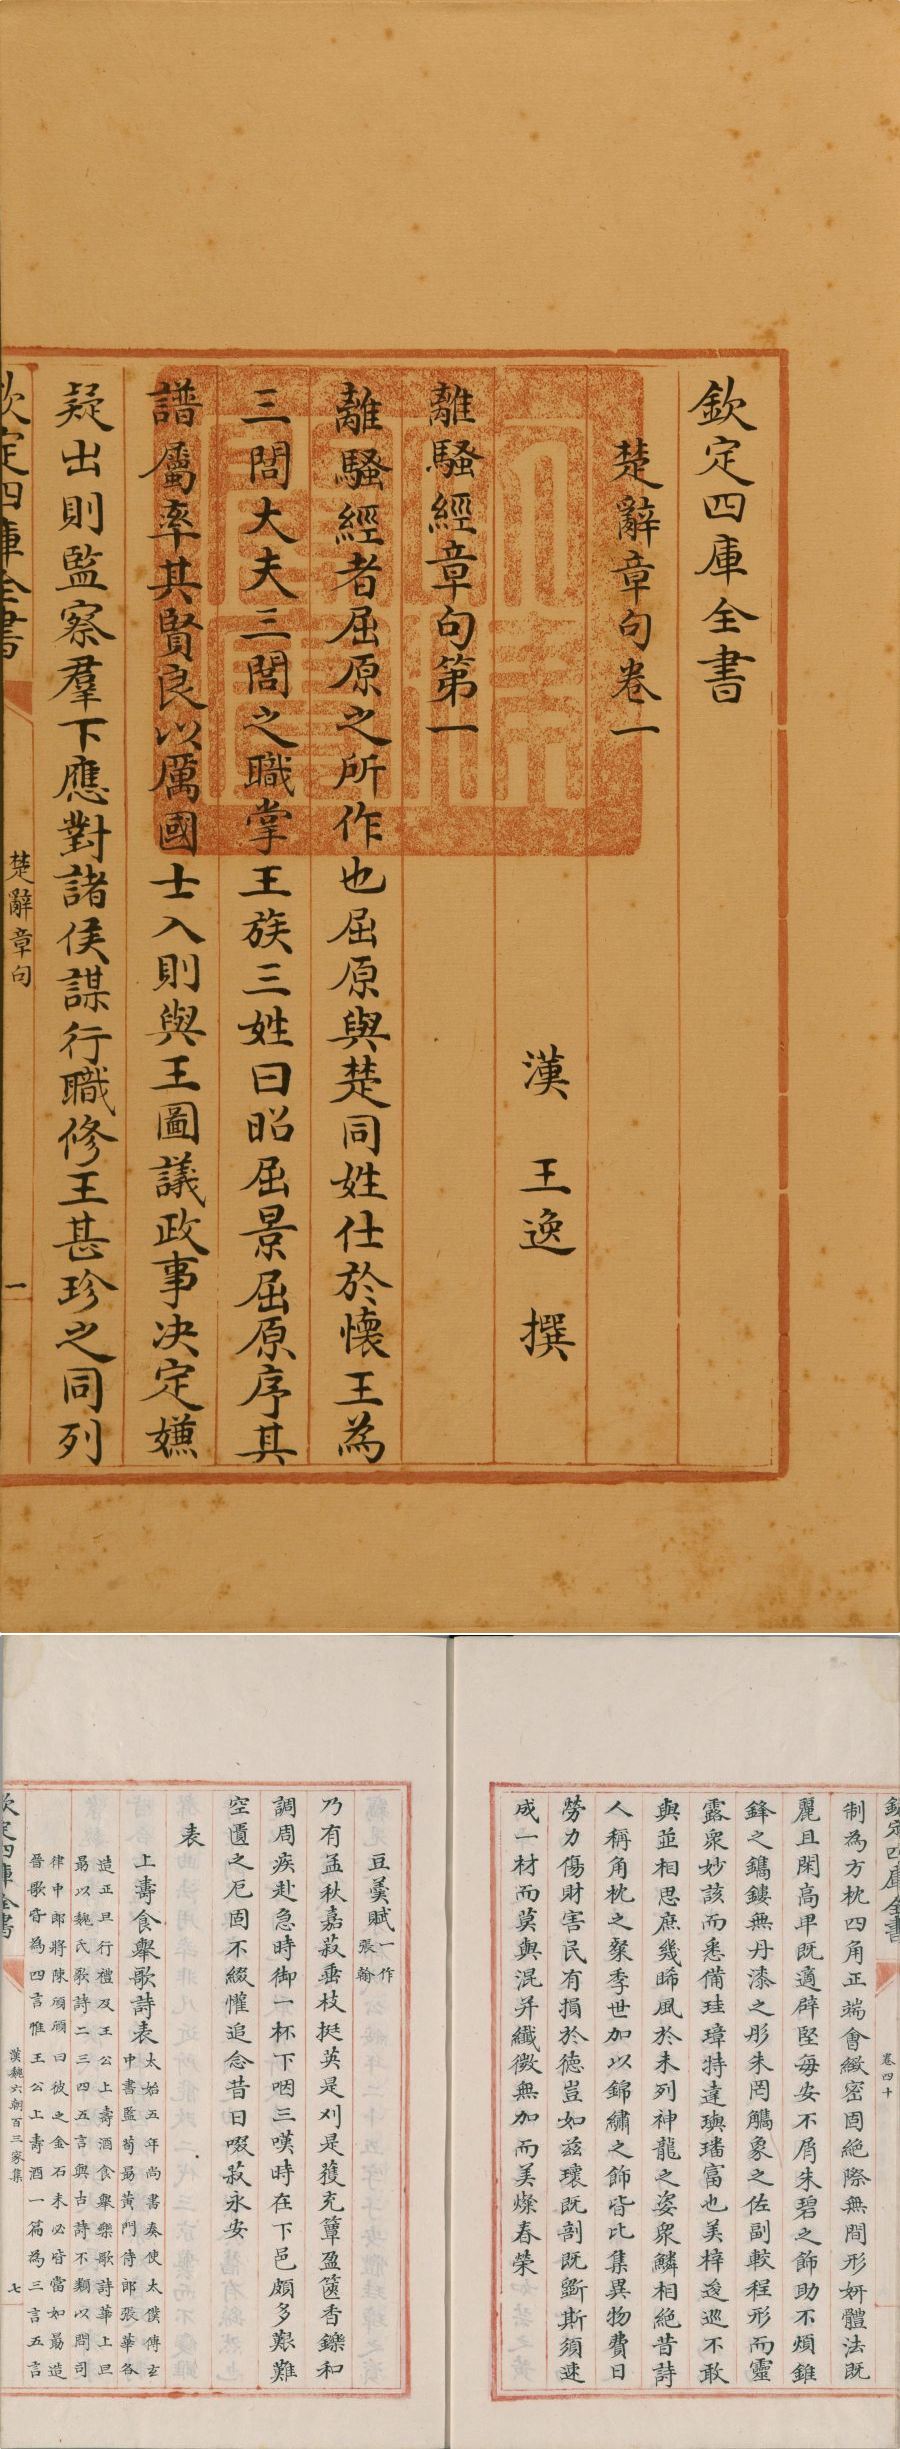 欽定四庫全書
楚辭章句卷一
漢 王逸 撰
離騷經章句第一
離騷經者屈原之所作也屈原與楚同姓仕於懷王為
三閭大夫三閭之職掌王族三姓曰昭屈景屈原序其
譜屬率其賢良以厲國士入則與王圖議政事决定嫌
疑出則監察羣下應對諸侯謀行職修王甚珍之同列
欽定四庫全書
楚辭章句
一
欽定四庫全書
卷四十
制為方枕四角正端會緻密固絶際無間形妍體法既
麗且閑高卑既適辟堅每安不屑朱碧之飾助不煩錐
鋒之鐫鏤無丹漆之彤朱罔觿象之佐副較程形而靈
露衆妙該而悉備珪璋特達璵璠富也美梓逡巡不敢
與並相思庶幾晞風於末列神龍之姿衆鱗相絶昔詩
人稱角枕之粲季世加以錦繡之飾皆比集異物費日
勞力傷財害民有損於徳豈如兹瓌既剖既斵斯須速
成一材而莫與混并纖微無加而美燦春榮
豆羮賦一作張翰
乃有孟秋嘉菽垂枝挺英是刈是獲充簞盈篋香鑠和
調周疾赴急時御一杯下咽三嘆時在下邑頗多艱難
空匱之厄固不綴懽追念昔日啜菽永安
表
上壽食舉歌詩表太始五年尚書奏使太僕傅玄
中書監荀勗黄門侍郎張華各
造正旦行禮及王公上壽酒食舉樂歌詩華上曰
勗以魏氏歌詩二三四五言與古詩不類以問司
律中郎將陳頎頎曰彼之金石未必皆當如勗造
晉歌皆為四言惟王公上壽酒一篇為三言五言
欽定四庫全書
漢魏六朝百三家集
七